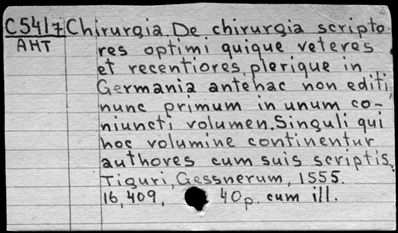 C5417 Chirurgia. De chirurgia scripto-
AHT res optimi quique veteres
et recentiores, plerique in
Germania antehac non editi,
nunc primum in unum co-
niuncti volumen. Singuli qui
hoc volumine continentur
authores cum suis scriptis.
Tiguri, Gessnerum, 1555.
16,409, 40p. cum ill.